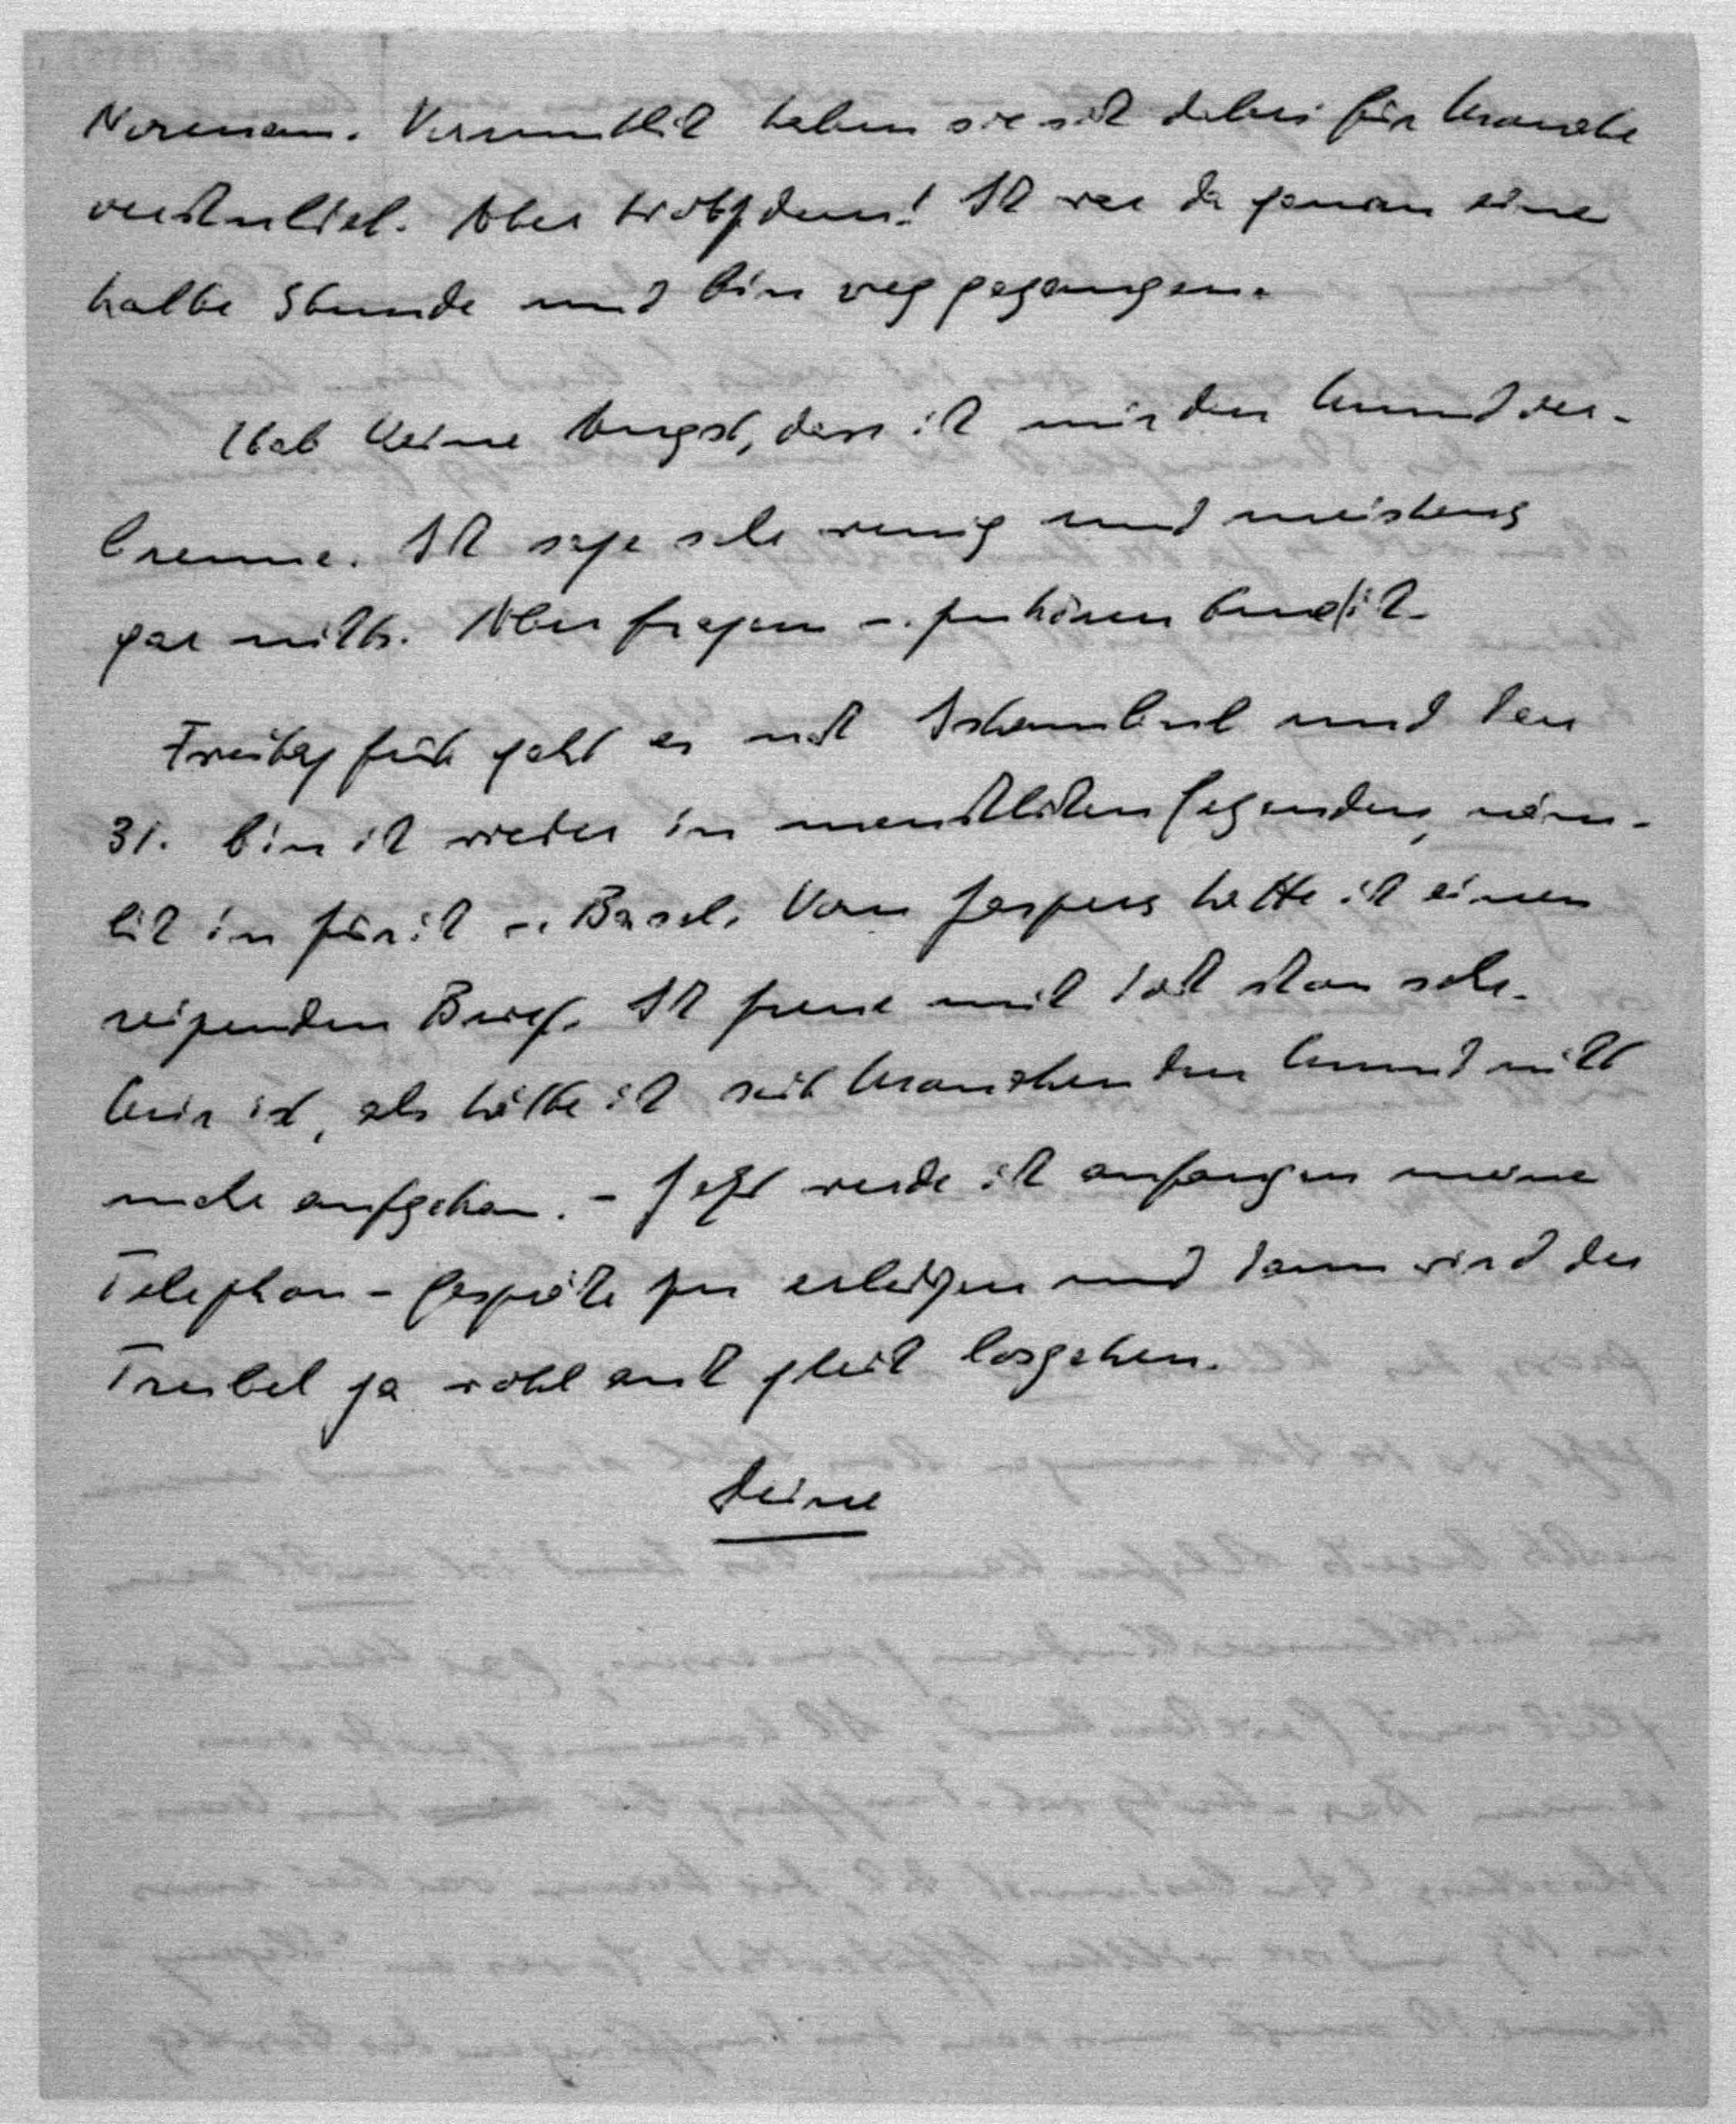 Vermutlich haben sie sich dabei für Monate
verschuldet. Aber trotzdem! Ich war da genau eine
halbe Stunde und bin weggegangen.
Hab keine Angst, dass ich mir den Mund ver-
brenne. Ich sage sehr wenig und meistens
gar nichts. Aber fragen u. zuhören
Freitag früh geht es nach Istambul und den
31. bin ich wieder in menschlichen Gegenden, näm-
lich in Zürich u. Basel. Von Jaspers hatte ich einen
reizenden Brief. Ich freue mich doch schon sehr.
Mir ist, als hätte ich seit Monaten den Mund nicht
mehr aufgetan. - Jetzt werde ich anfangen meine
Telephon-Gespräche zu erledigen und dann wird der
Trubel ja wohl auch gleich losgehen.
Deine